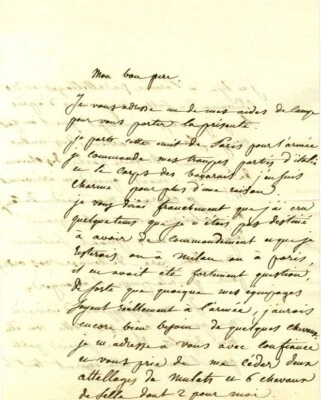 Mon bon pere.
Je vous adresse un de mes aides de camp
pour vous porter la présente
je parts cette nuit de Paris pour l'armée
je commande mes troupes parties d'italie
et le corps des bavarois. j'en suis
charmé pour plus d'une raison.
je vous dirai franchement que j'ai cru
quelque tems que je n'étois pas destiné
à avoir de commandement et que je
resterois, ou à Milan ou à paris,
il en avoit été fortement question,
de sorte que quoique mes equipages
soyent réellement à l'armée, j'aurois
encore bien besoin de quelques chevaux.
je m'adresse à vous avec confiance
et vous prie de me céder deux
attellages de mulets et 6 chevaux
de selle dont 2 pour moi.